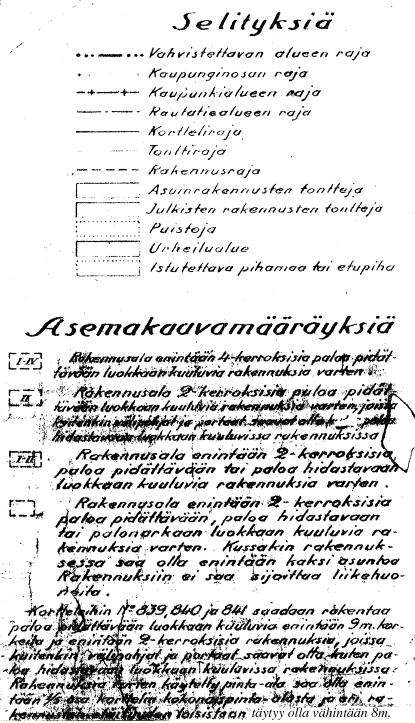 Selityksiä
Vahvistettavan alueen raja
Kaupunginosan raja
Kaupunkialueen raja
Rautatiealueen raja
Kortteliraja
Tonttiraja
Rakennusraja
Asuinrakennusten tontteja
Julkisten rakennusten tontteja
Puistoja
Urheilualue
Istutettava pihamaa tai etupiha
Asemakaavamääräyksiä
I-IV Rakennusala enintään 4-kerroksisia paloa pidät-
tävään luokkaan kuuluvia rakennuksia varten.
II Rakennusala 2-kerroksisia paloa pidät-
tävään luokkaan kuuluvia rakennuksia varten, joissa
kuitenkin välipohjat ja portaat saavat olla paloa
hidastavaan luokkaan kuuluvissa rakennuksissa
I-II Rakennusala enintään 2-kerroksisia
paloa pidättävään tai paloa hidastavaan
luokkaan kuuluvia rakennuksia varten.
Rakennusala enintään 2-kerroksisia
paloa pidättävään, paloa hidastavaan
tai palonarkaan luokkaan kuuluvia ra-
kennuksia varten. Kussakin rakennuk-
sessa saa olla enintään kaksi asuntoa
Rakennuksiin ei saa sijoittaa liikehuo-
neita.
Kortteleihin Nº 839, 840 ja 841 saadaan rakentaa
paloa pidättävään luokkaan kuuluvia enintään 9 m. kor-
keita ja enintään 2-kerroksisia rakennuksia, joissa
kuitenkin välipohjat ja portaat saavat olla kuten pa-
loa hidastavaan luokkaan kuuluvissa rakennuksissa.
Rakennuksia varten käytetty pinta-ala saa olla enin-
tään ⅓ osa korttelin kokonaispinta-alasta ja eri ra-
kennusten etäisyyden toisistaan täytyy olla vähintään 8m.